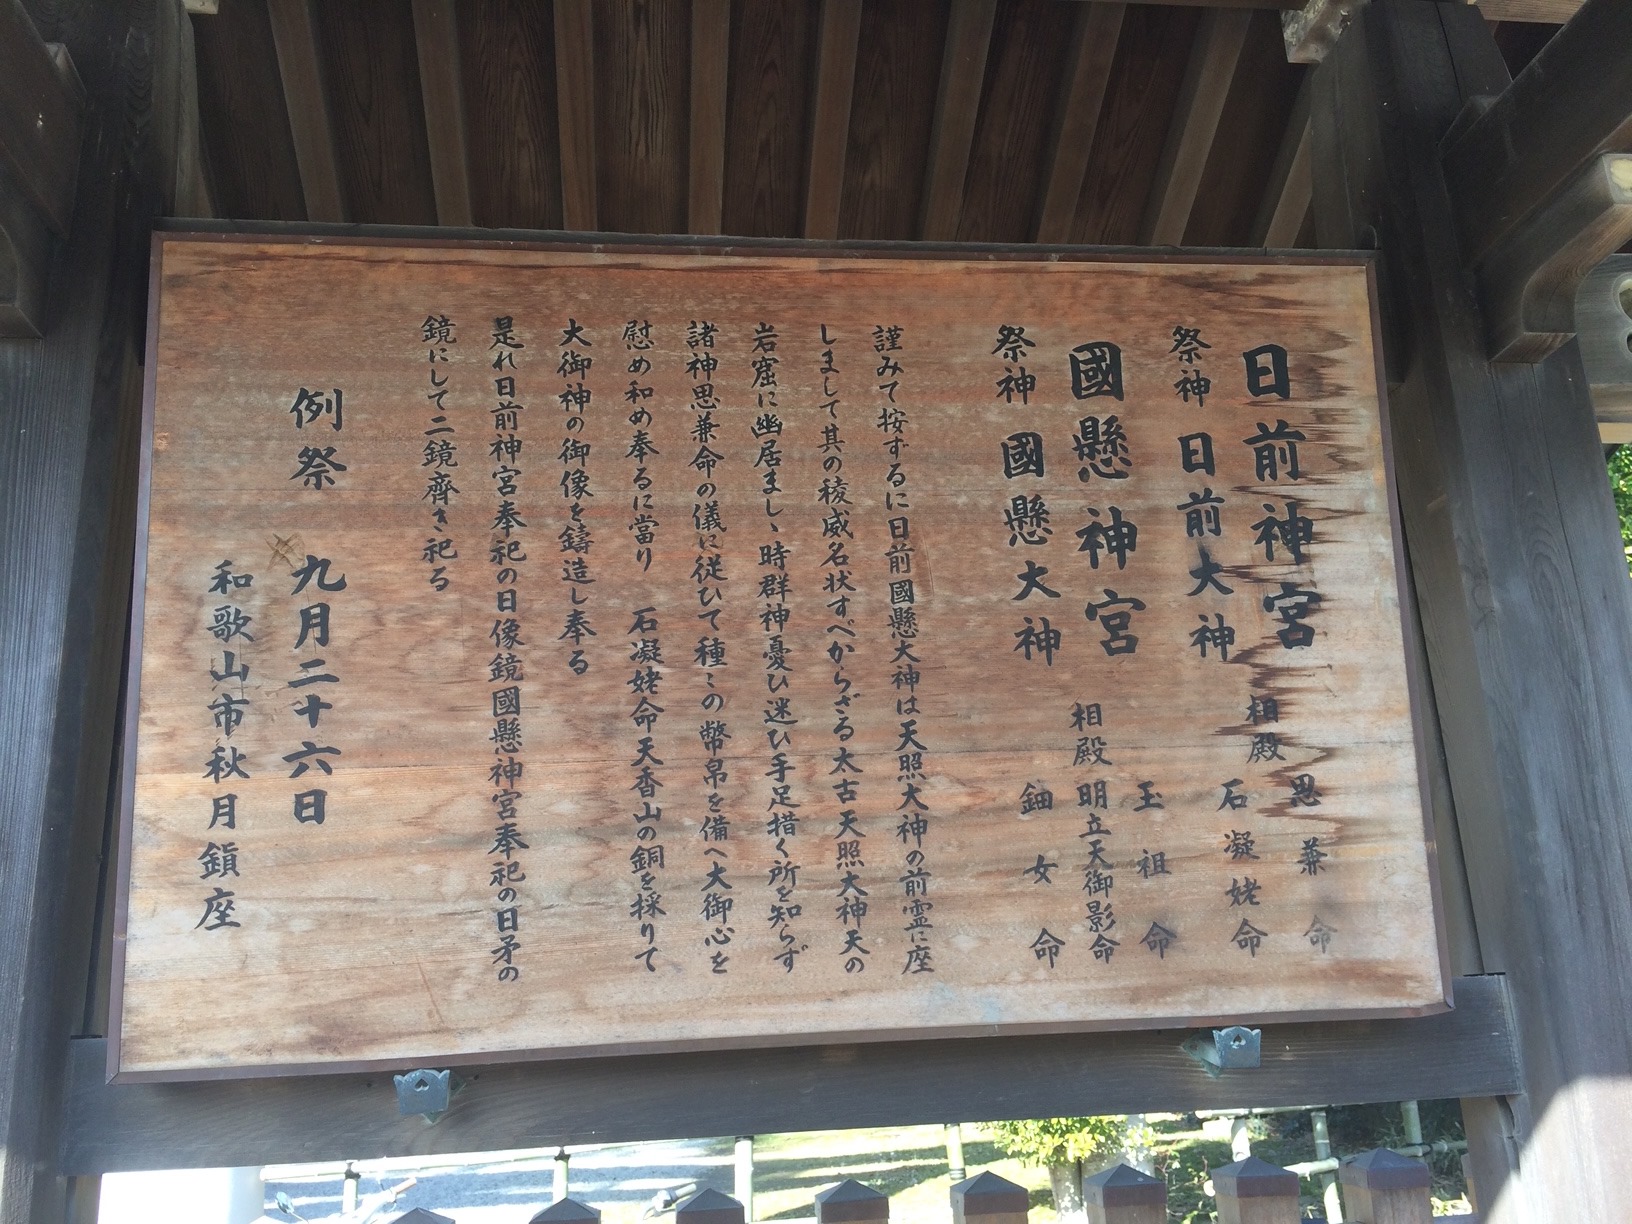 日前神宮
祭神 日前大神
相殿 思兼命
石凝姥命
國懸神宮
祭神 國懸大神
相殿 玉祖命
明立天御影命
鈿女命
謹みて按ずるに日前國懸大神は天照大神の前霊に座
しまして其の稜威名状すべからざる太古天照大神天の
岩窟に幽居ましゝ時群神憂ひ迷ひ手足措く所を知らず
諸神思兼命の儀に従ひて種〻の幣帛を備へ大御心を
慰め和め奉るに當り 石凝姥命天香山の銅を採りて
大御神の御像を鑄造し奉る
是れ日前神宮奉祀の日像鏡國懸神宮奉祀の日矛の
鏡にして二鏡齊き祀る
例祭 九月二十六日
和歌山市秋月鎭座